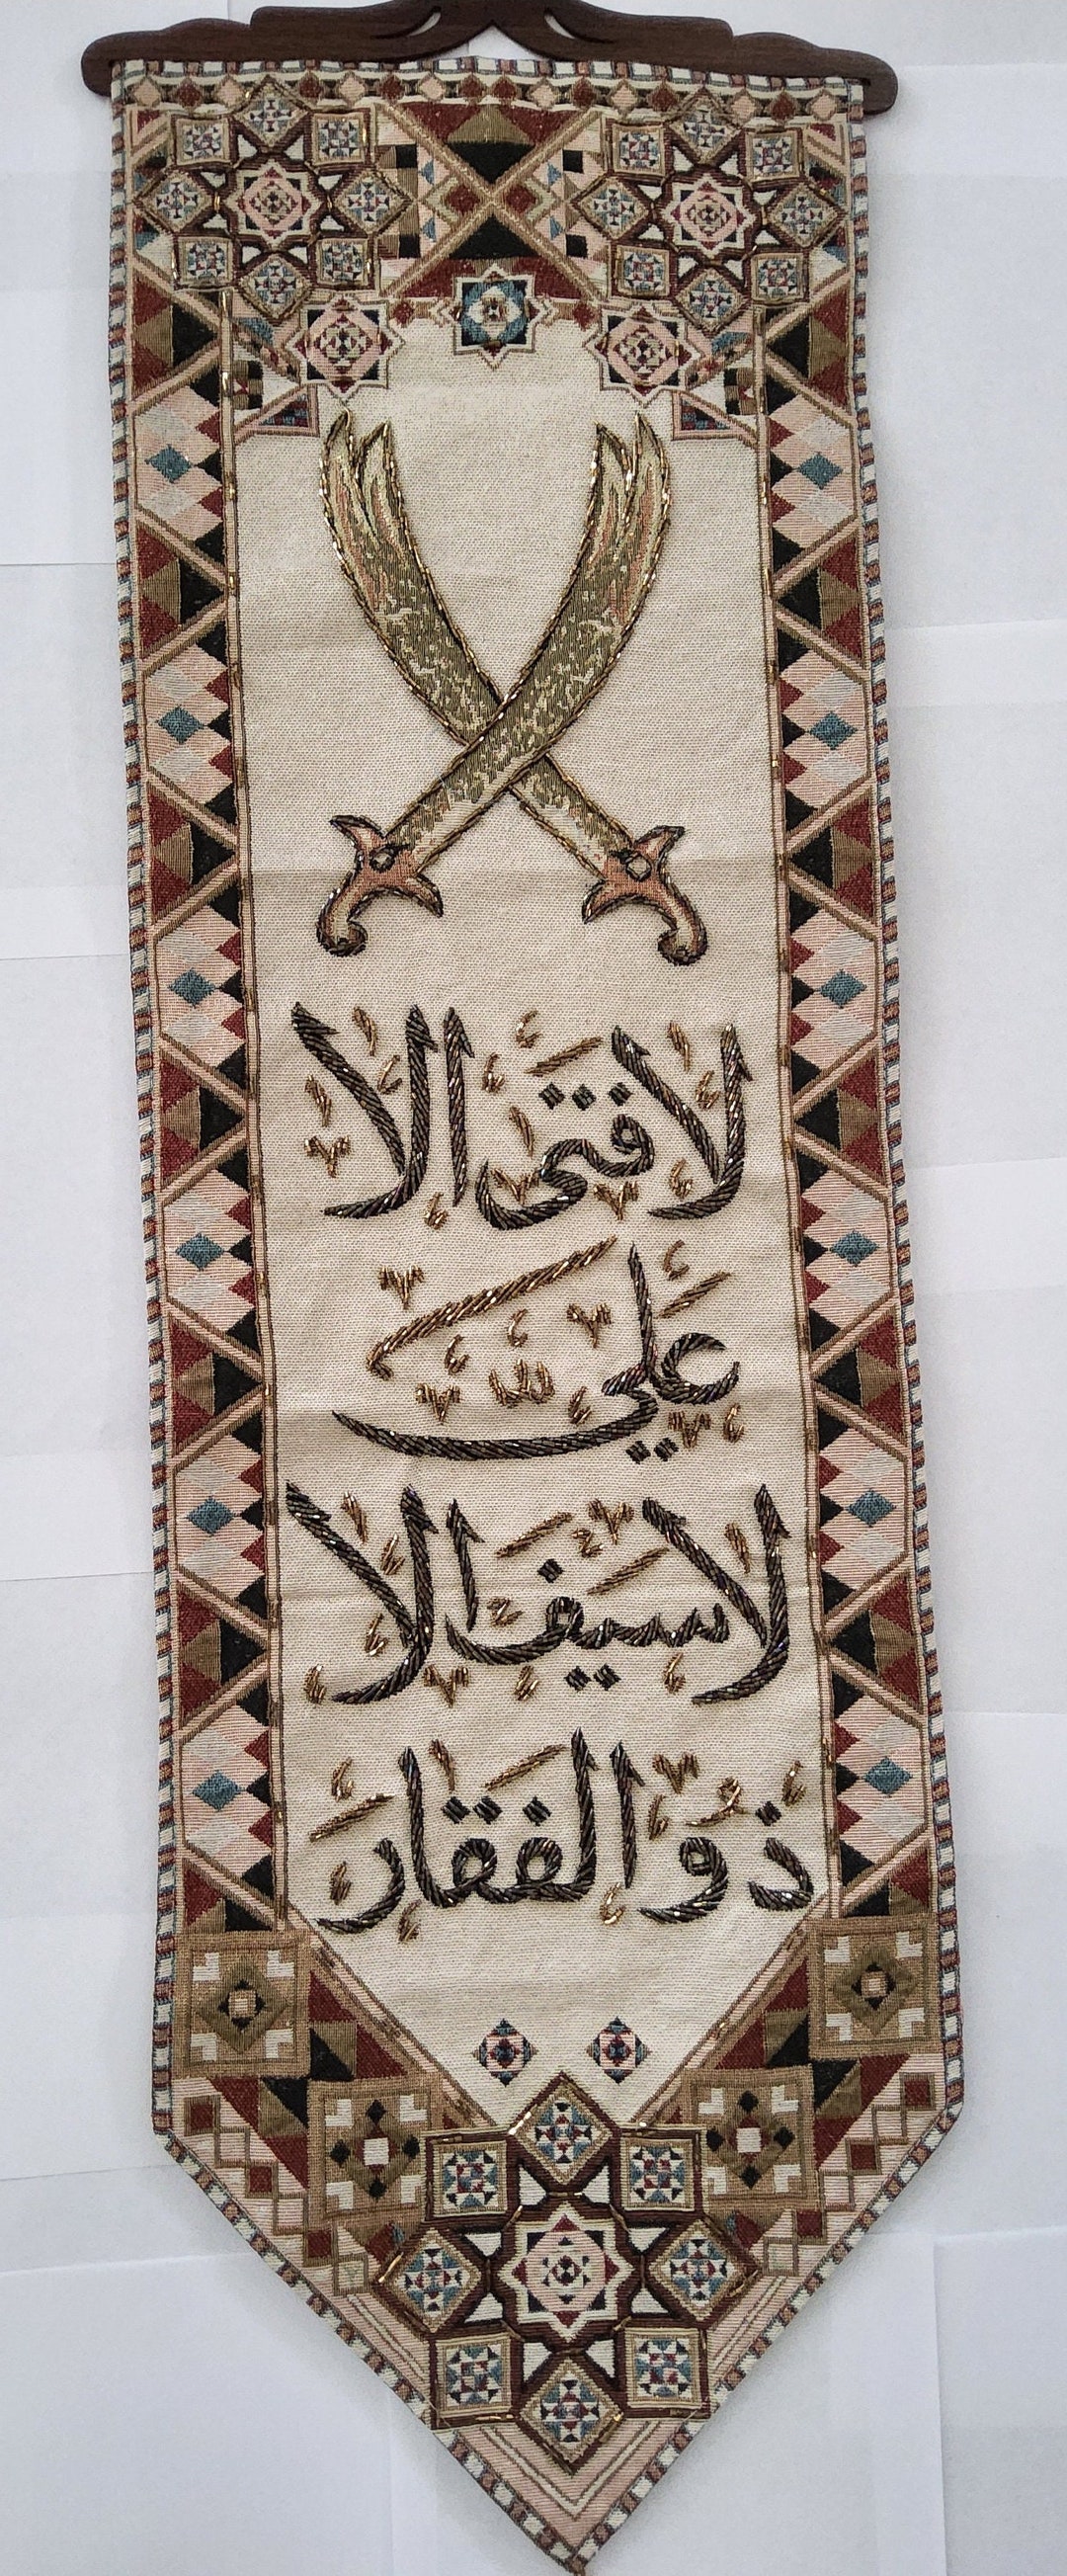 لا فتى الا
علي
لا سيف الا
ذو الفقار